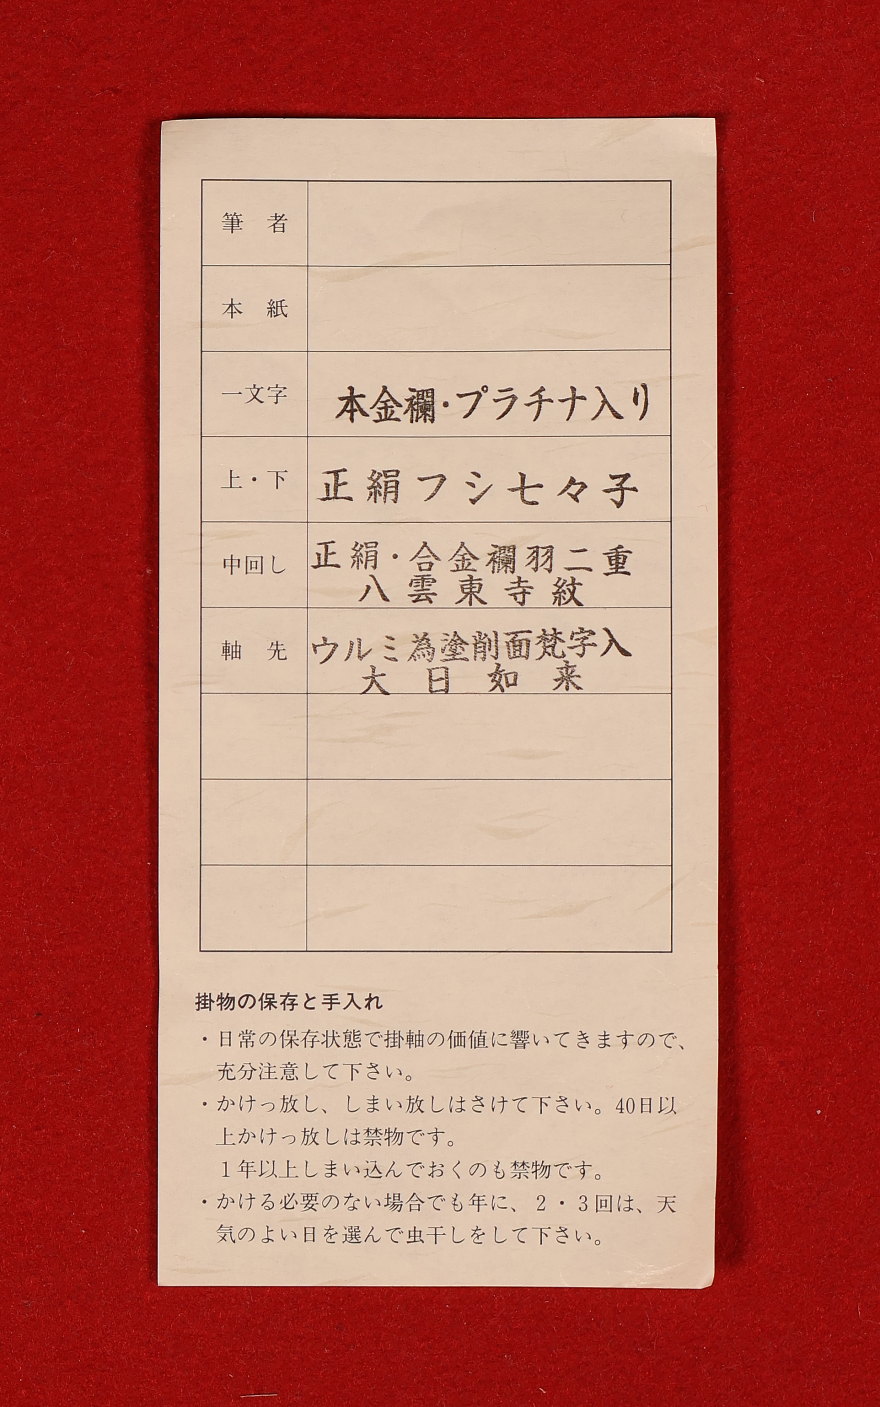 筆　者
本　紙
一文字　本金襴・プラチナ入り
上・下　正絹フシ七々子
中回し　正絹・合金襴羽二重
八雲東寺紋
軸　先　ウルミ為塗削面梵字入
大日如来
掛物の保存と手入れ
・日常の保存状態で掛軸の価値に響いてきますので、
充分注意して下さい。
・かけっ放し、しまい放しはさけて下さい。40日以
上かけっ放しは禁物です。
１年以上しまい込んでおくのも禁物です。
・かける必要のない場合でも年に、２・３回は、天
気のよい日を選んで虫干しをして下さい。